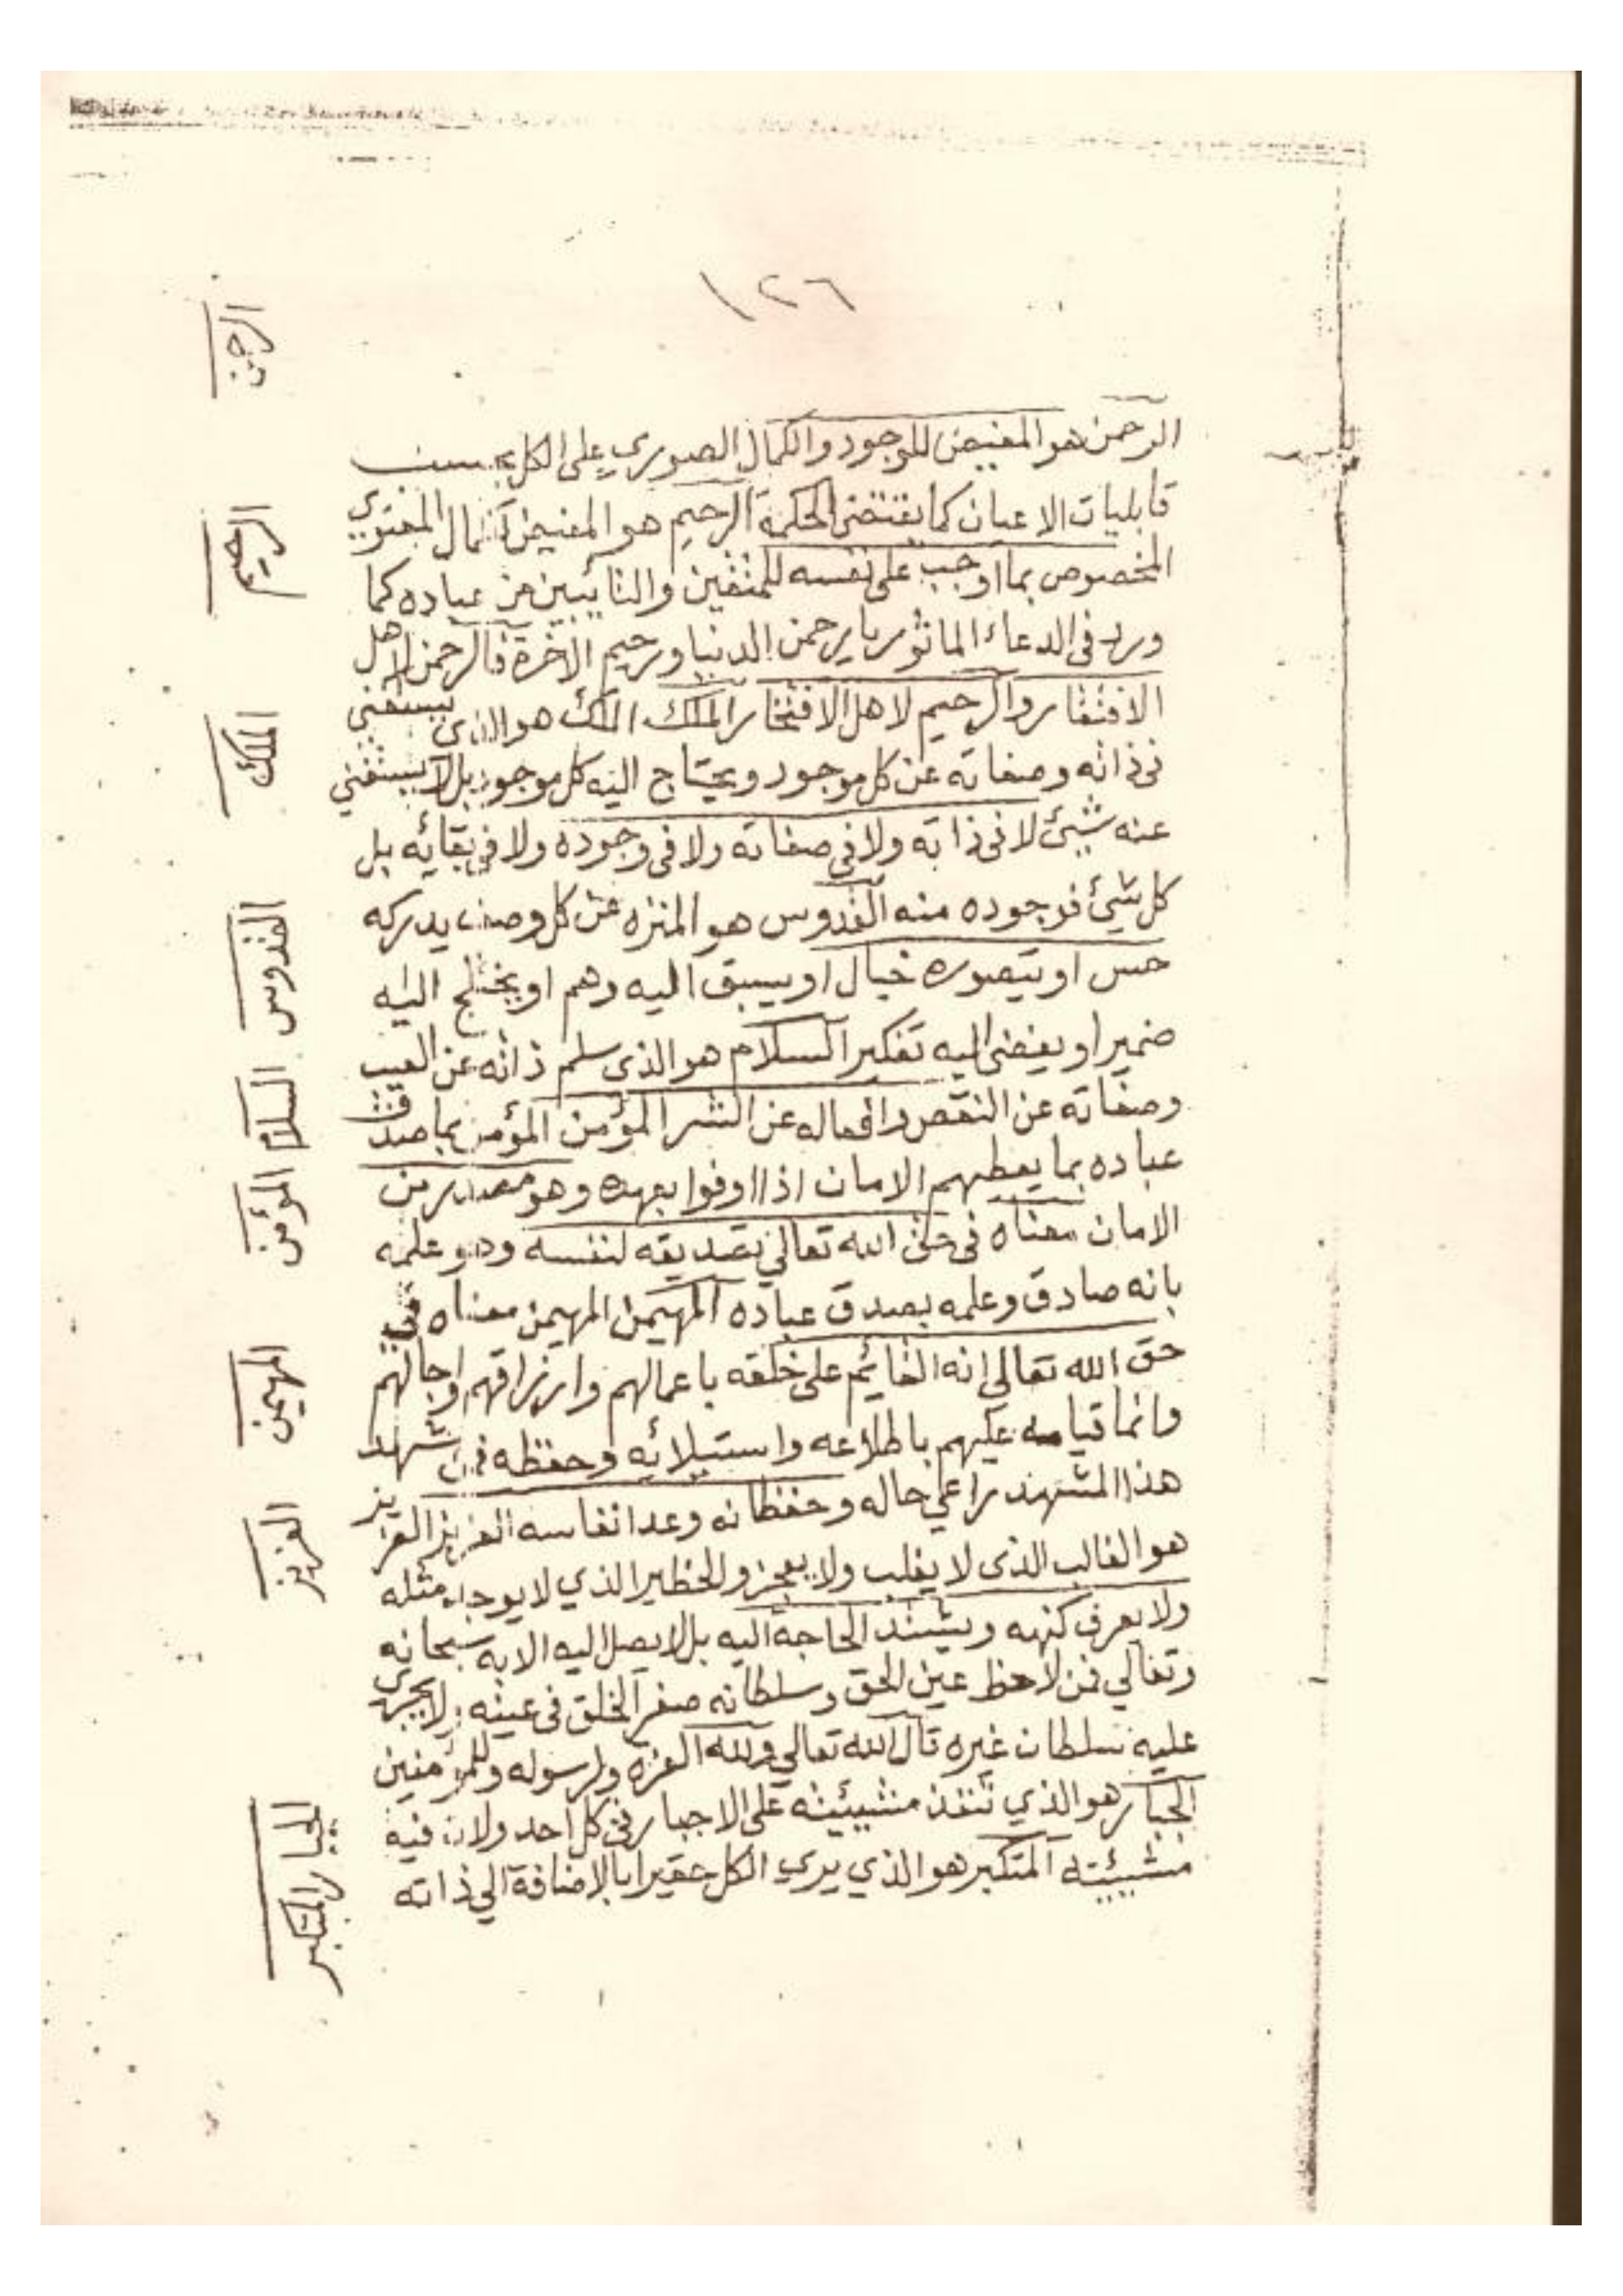 ١٢٦
الرحمن
الرحمن هو المفيض للوجود والكمال الصوري على الكل بحسب
قابليات الاعيان كما يقتضى الحكمة الرحيم هو المفيض لكمال المعنوي
الرحيم
المخصوص بما اوجب على نفسه للمتقين والتائبين من عباده كما
ورد فى الدعاء الماثور يا رحمن الدنيا ورحيم الاخرة فالرحمن لاهل
الافتقار والرحيم لاهل الافتخار الملك الملك هو الذي يستغني
الملك
فى ذاته وصفاته عن كل موجود ويحتاج اليه كل موجود بل لا يستغني
عنه شيئ لا فى ذاته ولا فى صفاته ولا فى وجوده ولا فى بقائه بل
كل شيئ فوجوده منه القدوس هو المنزه عن كل وصف يدركه
القدوس
حس او يتصوره خيال او يسبق اليه وهم او يختلج اليه
ضمير او يفضى اليه تفكير السلام هو الذى سلم ذاته عن العيب
السلام
وصفاته عن النقص وافعاله عن الشر المؤمن المؤمن بما صدقت
عباده بما يعطيهم الامان اذا اوفوا بعهده وهو مصدر من
المؤمن
الامان معناه فى حق الله تعالي تصديقه لنفسه وهو علمه
بانه صادق وعلمه بصدق عباده المهيمن المهيمن معناه في
حق الله تعالي انه القائم على خلقه باعمالهم وارزاقهم واجالهم
المهيمن
وانما قيامه عليهم باطلاعه واستيلائه وحفظه فمن شهد
هذا المشهد راعي حاله وحفظ انه وعد انفاسه العزيز العزيز
العزيز
هو الغالب الذى لا يغلب ولا يعجز والخطير الذي لا يوجد مثله
ولا يعرف كنهه ويشتد الحاجة اليه بل لا يصل اليه الا به سبحانه
وتعالي فمن لاحظ عين الحق وسلطانه صغر الخلق فى عينه ولا يجرى
عليه سلطان غيره قال الله تعالي ولله العزه ولرسوله وللمؤمنين
الجبار هو الذي تنفذ مشيئته على الاجبار فى كل احد ولا فيه
الجبار المتكبر
مشيئته المتكبر هو الذي يري الكل حقيرا بالاضافة الي ذاته